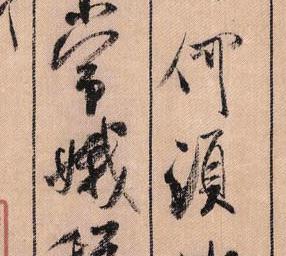 何須
常娥